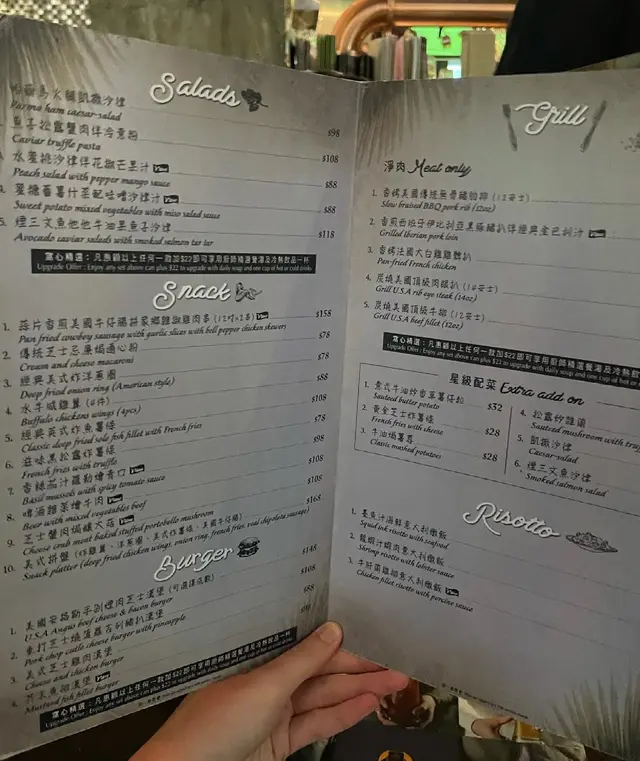 Salads
Parma ham caesar-salad $98
Caviar truffle pasta $108
水蜜桃沙律伴花椒芒果汁
Peach salad with pepper mango sauce $88
Sweet potato mixed vegetables with miso salad sauce $88
5. 煙三文魚他他牛油果魚子沙律
Avocado caviar salads with smoked salmon tar tar $118
窩心精選：凡惠顧以上任何一款加$22即可享用廚師精選餐湯及冷熱飲品一杯
Upgrade Offer : Enjoy any set above can plus $22 to upgrade with daily soup and one cup of hot or cold drinks
Snack
1. 蒜片香煎美國牛仔腸拼家鄉雞肉串
Pan fried cowboy sausage with garlic slices with bell pepper chicken skewers $158
2. 傳統芝士忌廉焗通心粉
Cream and cheese macaroni $78
3. 經典美式炸洋蔥圈
Deep fried onion ring (American style) $78
4. 水牛城雞翼 (4件)
Buffalo chickens wings (4pcs) $88
5. 經典英式炸魚薯條
Classic deep fried sole fish fillet with French fries $108
6. 滋味黑松露炸薯條
French fries with truffle $78
7. 香辣茄汁羅勒燴青口
Basil mussels with spicy tomato sauce $98
8. 啤酒雜菜燴牛肉
Beer with mixed vegetables beef $108
9. 芝士蟹肉焗釀大菇
Cheese crab meat baked stuffed portobello mushroom $108
10. 美式拼盤
Snack platter (deep fried chicken wings, onion ring, french fries, veal chipolata sausage) $168
Burger
1. 美國安格斯牛刴煙肉芝士漢堡
U.S.A Angus beef cheese & bacon burger $148
2. 東打芝士燒菠蘿吉列豬扒漢堡
Pork chop cutlo cheese burger with pineapple $108
3. 美式芝士雞肉漢堡
Cheese and chicken burger $88
4. 芥末魚柳漢堡
Mustard fish fillet burger
窩心精選：凡惠顧以上任何一款加$22即可享用廚師精選餐湯及冷熱飲品一杯
Upgrade Offer : Enjoy any set above can plus $22 to upgrade with daily soup and one cup of hot or cold drinks
Grill
淨肉 Meat only
1. 香烤美國傳統無骨豬肋排 (12安士)
Slow braised BBQ pork rib (12oz)
2. 香煎西班牙伊比利亞黑豚豬扒伴經典金巴利汁
Grilled Iberian pork loin
3. 香烤法國大白雞雞髀扒
Pan-fried French chicken
4. 炭燒美國頂級肉眼扒 (14安士)
Grill U.S.A rib eye steak (14oz)
5. 炭燒美國頂級牛柳 (12安士)
Grill U.S.A beef fillet (12oz)
窩心精選：凡惠顧以上任何一款加$22即可享用廚師精選餐湯及冷熱
Upgrade Offer : Enjoy any set above can plus $22 to upgrade with daily soup and one cup of hot
星級配菜 Extra add on
1. 意式牛油炒香草薯仔粒
Sauteed butter potato $32
2. 黃金芝士炸薯條
French fries with cheese $28
3. 牛油焗薯蓉
Classic mashed potatoes $28
4. 松露炒雜菌
Sauteed mushroom with
5. 凱撒沙律
Caesar-salad
6. 煙三文魚沙律
Smoked salmon salad
Risotto
1. 墨魚汁海鮮意大利燉飯
Squid ink risotto with seafood
2. 龍蝦汁蝦肉意大利燉飯
Shrimp risotto with lobster sauce
3. 牛肝菌雞柳意大利燉飯
Chicken fillet risotto with porcine sauce